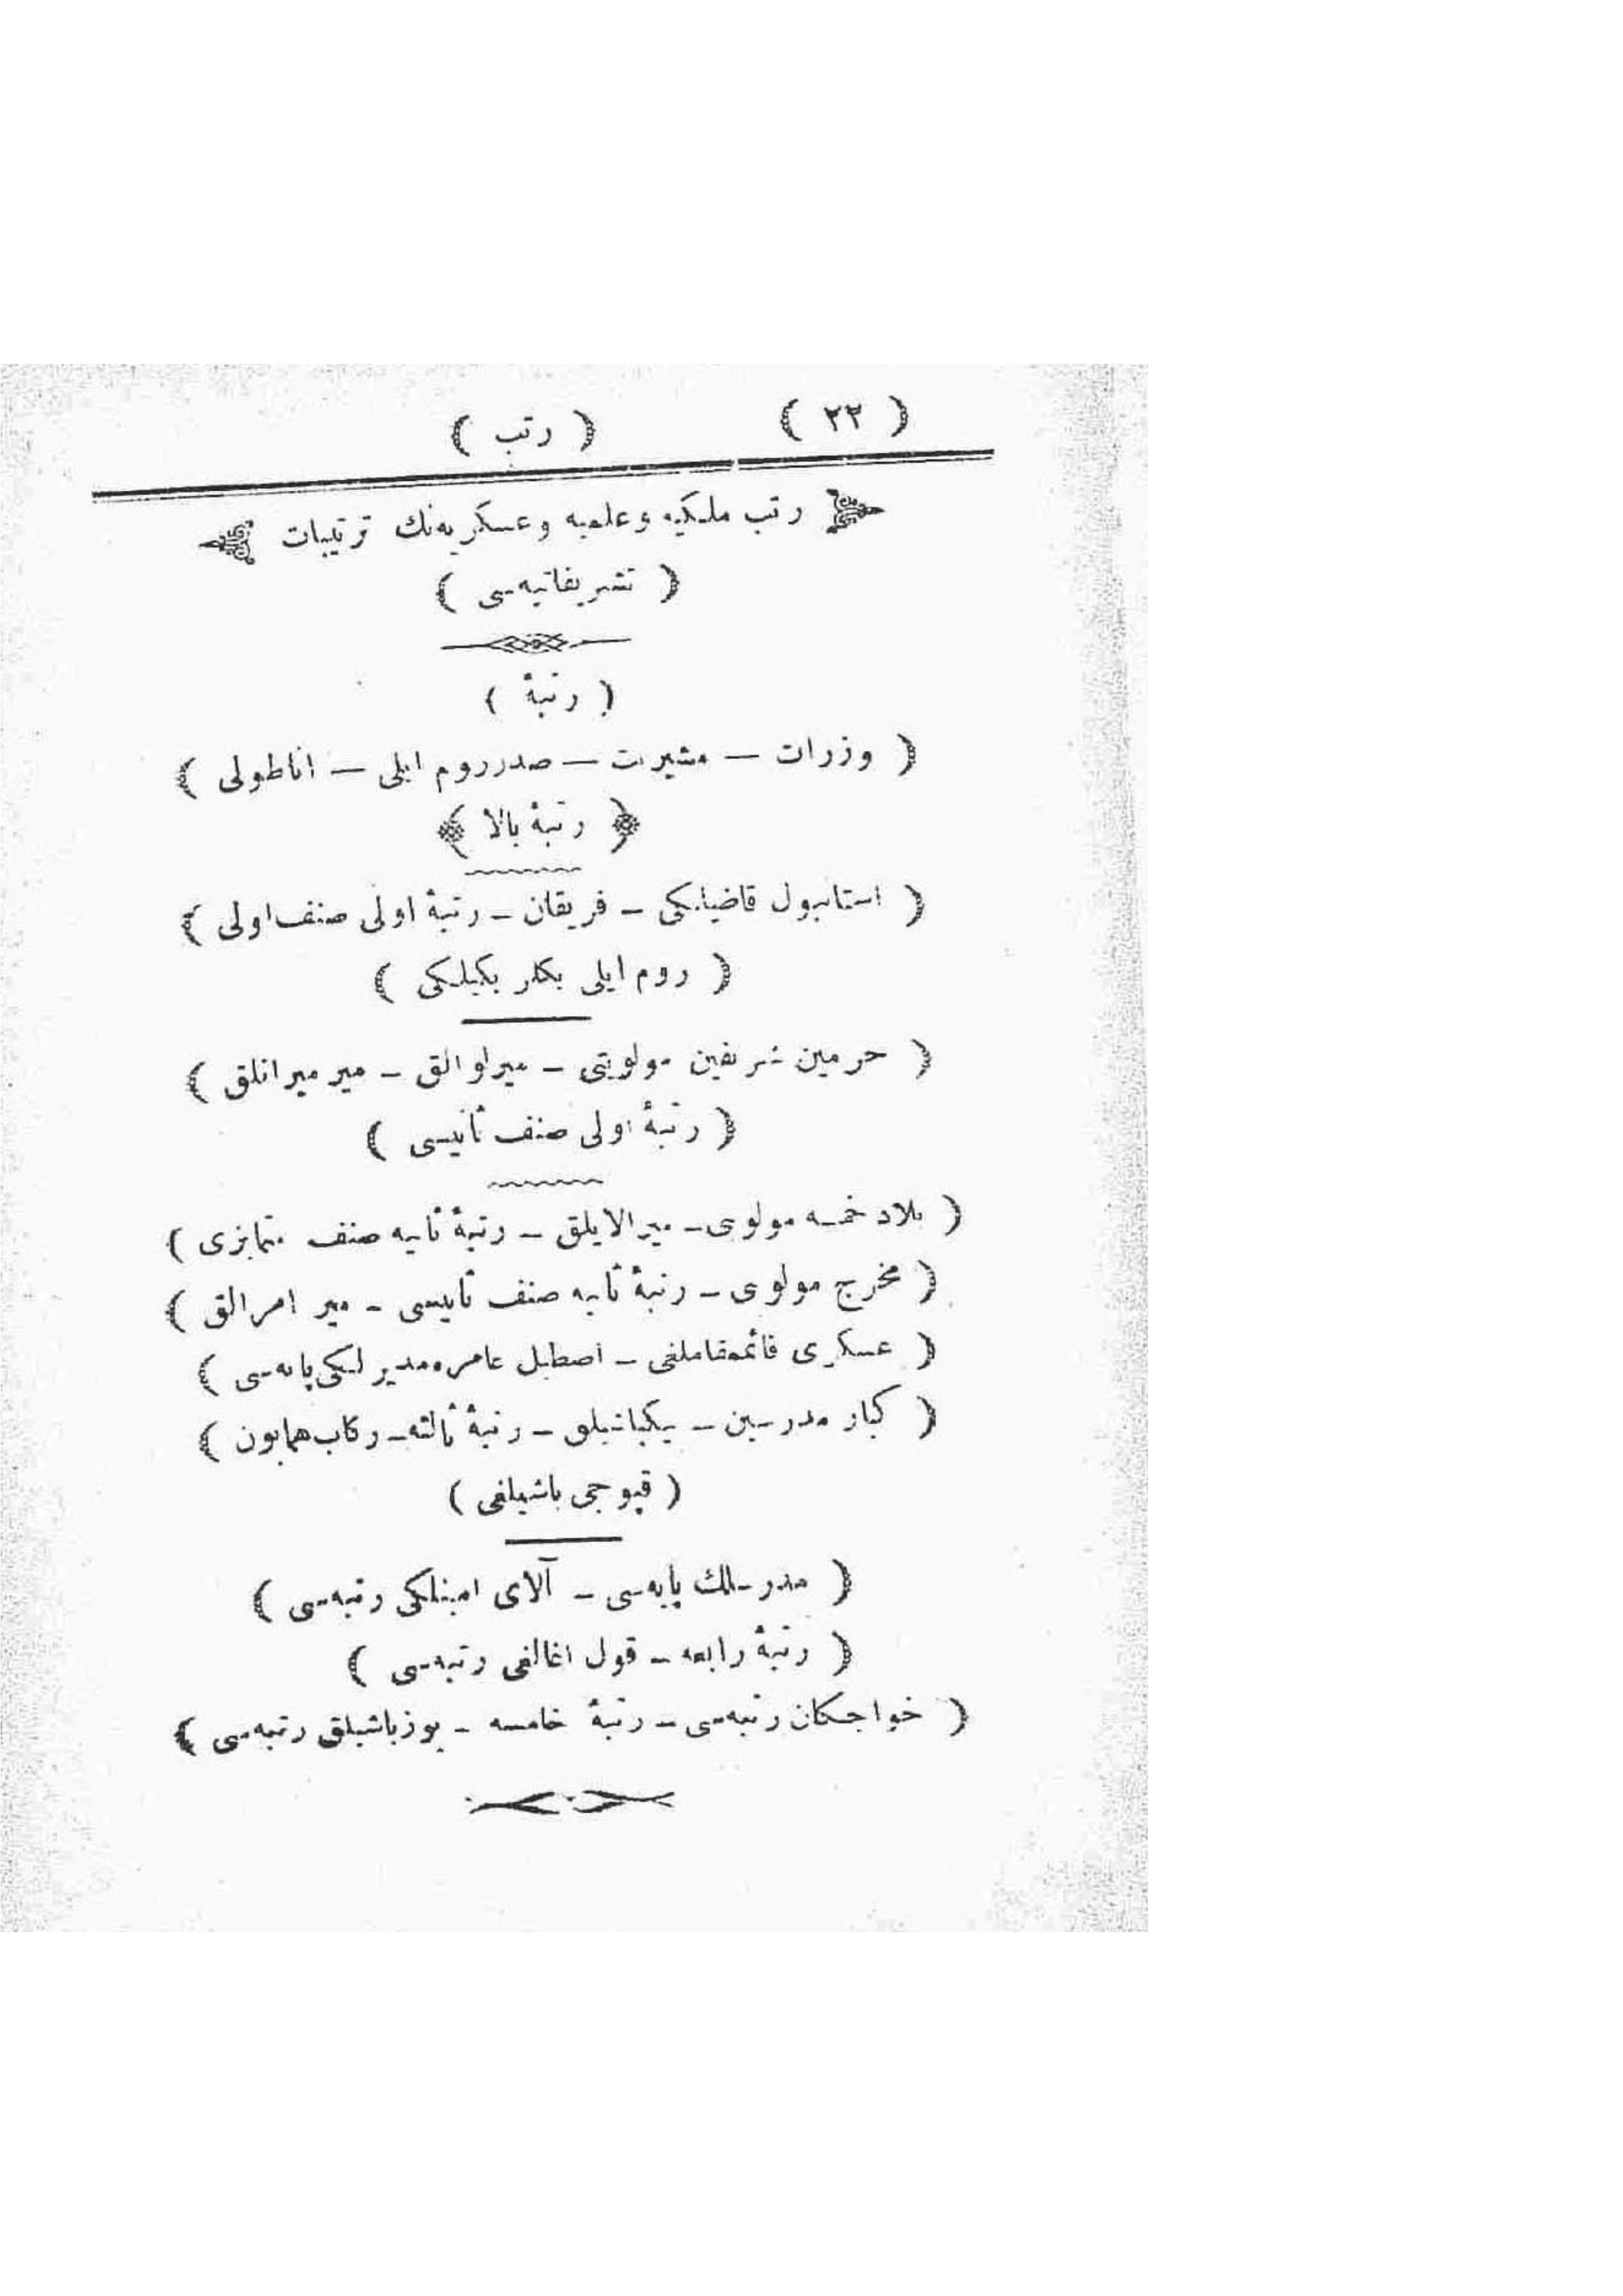 ( ٢٢ ) ( رتب )
رتب ملكیه و علمیه و عسكریه‌نك ترتیبات
( تشریفاتیه‌سی )
( رتبهٔ )
( وزرات — مشیریت — صدرروم ایلی — اناطولی )
( رتبهٔ بالا )
( استانبول قاضیلكی – فریقان – رتبهٔ اولی صنف اولی )
( روم ایلی بكلر بكیلكی )
( حرمین شریفین مولویتی – میرلوالق – میر میرانلق )
( رتبهٔ اولی صنف ثانیسی )
( بلاد خمسه مولوی – میرالایلق – رتبهٔ ثانیه صنف متمایزی )
( مخرج مولوی – رتبهٔ ثانیه صنف ثانیسی – میر امرالق )
( عسكری قائمقاملغی – اصطبل عامره مدیرلكی پایه‌سی )
( كبار مدرسین – بیكباشیلق – رتبهٔ ثالثه – ركاب همایون )
( قپوجی باشیلغی )
( مدرسلك پایه‌سی – آلای امینلكی رتبه‌سی )
( رتبهٔ رابعه – قول اغالغی رتبه‌سی )
( خواجكان رتبه‌سی – رتبهٔ خامسه – یوزباشیلق رتبه‌سی )